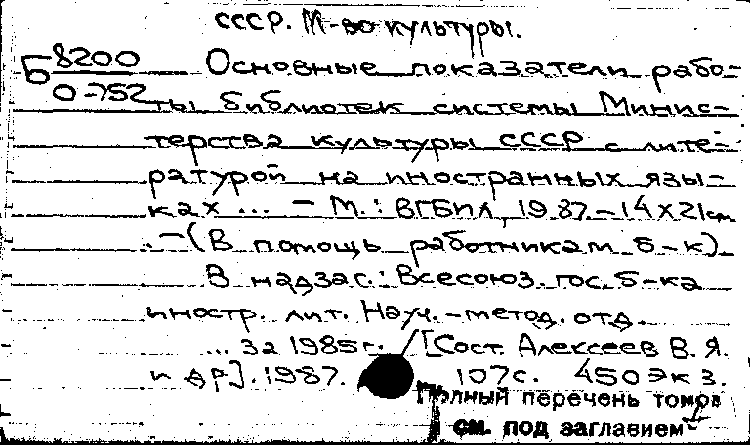 СССР. М-во культуры.
Б 8200
0-752
Основные показатели рабо-
ты библиотек системы Минис-
терства культуры СССР с лите-
ратурой на иностранных язы-
ках ... - М.: ВГБИЛ, 1987. - 14 X 21 см
. - (В помощь работникам б-к).
В надзаг.: Всесоюз. гос. б-ка
иностр. лит. Науч.-метод. отд.
... за 1985 г. / [Сост. Алексеев В. Я.
и др]. 1987. 107 с. 450 экз.
Полный перечень томов
см. под заглавием